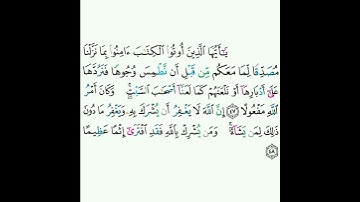 يَٰٓأَيُّهَا ٱلَّذِينَ أُوتُوا۟ ٱلْكِتَٰبَ ءَامِنُوا۟ بِمَا نَزَّلْنَا
مُصَدِّقًا لِّمَا مَعَكُم مِّن قَبْلِ أَن نَّطْمِسَ وُجُوهًا فَنَرُدَّهَا
عَلَىٰٓ أَدْبَارِهَآ أَوْ نَلْعَنَهُمْ كَمَا لَعَنَّآ أَصْحَٰبَ ٱلسَّبْتِ ۚ وَكَانَ أَمْرُ
ٱللَّهِ مَفْعُولًا ٤٧ إِنَّ ٱللَّهَ لَا يَغْفِرُ أَن يُشْرَكَ بِهِۦ وَيَغْفِرُ مَا دُونَ
ذَٰلِكَ لِمَن يَشَآءُ ۚ وَمَن يُشْرِكْ بِٱللَّهِ فَقَدِ ٱفْتَرَىٰٓ إِثْمًا عَظِيمًا
٤٨